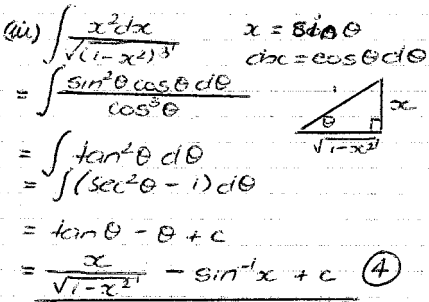 (iii) ∫ x²dx / √(1-x²)³ x = sin θ
dx = cos θ dθ
= ∫ sin²θ cos θ dθ / cos³θ
1 x θ √1-x²
= ∫ tan²θ dθ
= ∫ (sec²θ - 1) dθ
= tan θ - θ + c
= x / √1-x² - sin⁻¹x + c ④